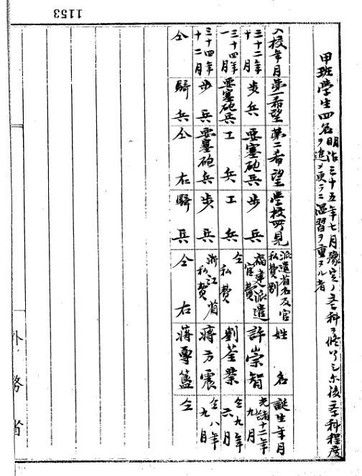 1153
甲班學生四名
明治三十五年七月豫定ノ学科ヲ修了シ尓後学科程度
ヲ進メ更ニ温習ヲ重ヌル者
入校年月 第一希望 第二希望 學校所見 派遣省名及官私費別 姓名 誕生年月
三十二年十月 步兵 要塞砲兵 步兵 福建派遣官費 許崇智 光緒十二年九月
三十四年一月 要塞砲兵 工兵 工兵 仝私費 劉荃業 仝九年六月
三十四年十二月 步兵 要塞砲兵 步兵 浙江省私費 蔣方震 仝八年九月
仝 騎兵 仝右 騎兵 仝右 蔣尊簋 仝
外務省